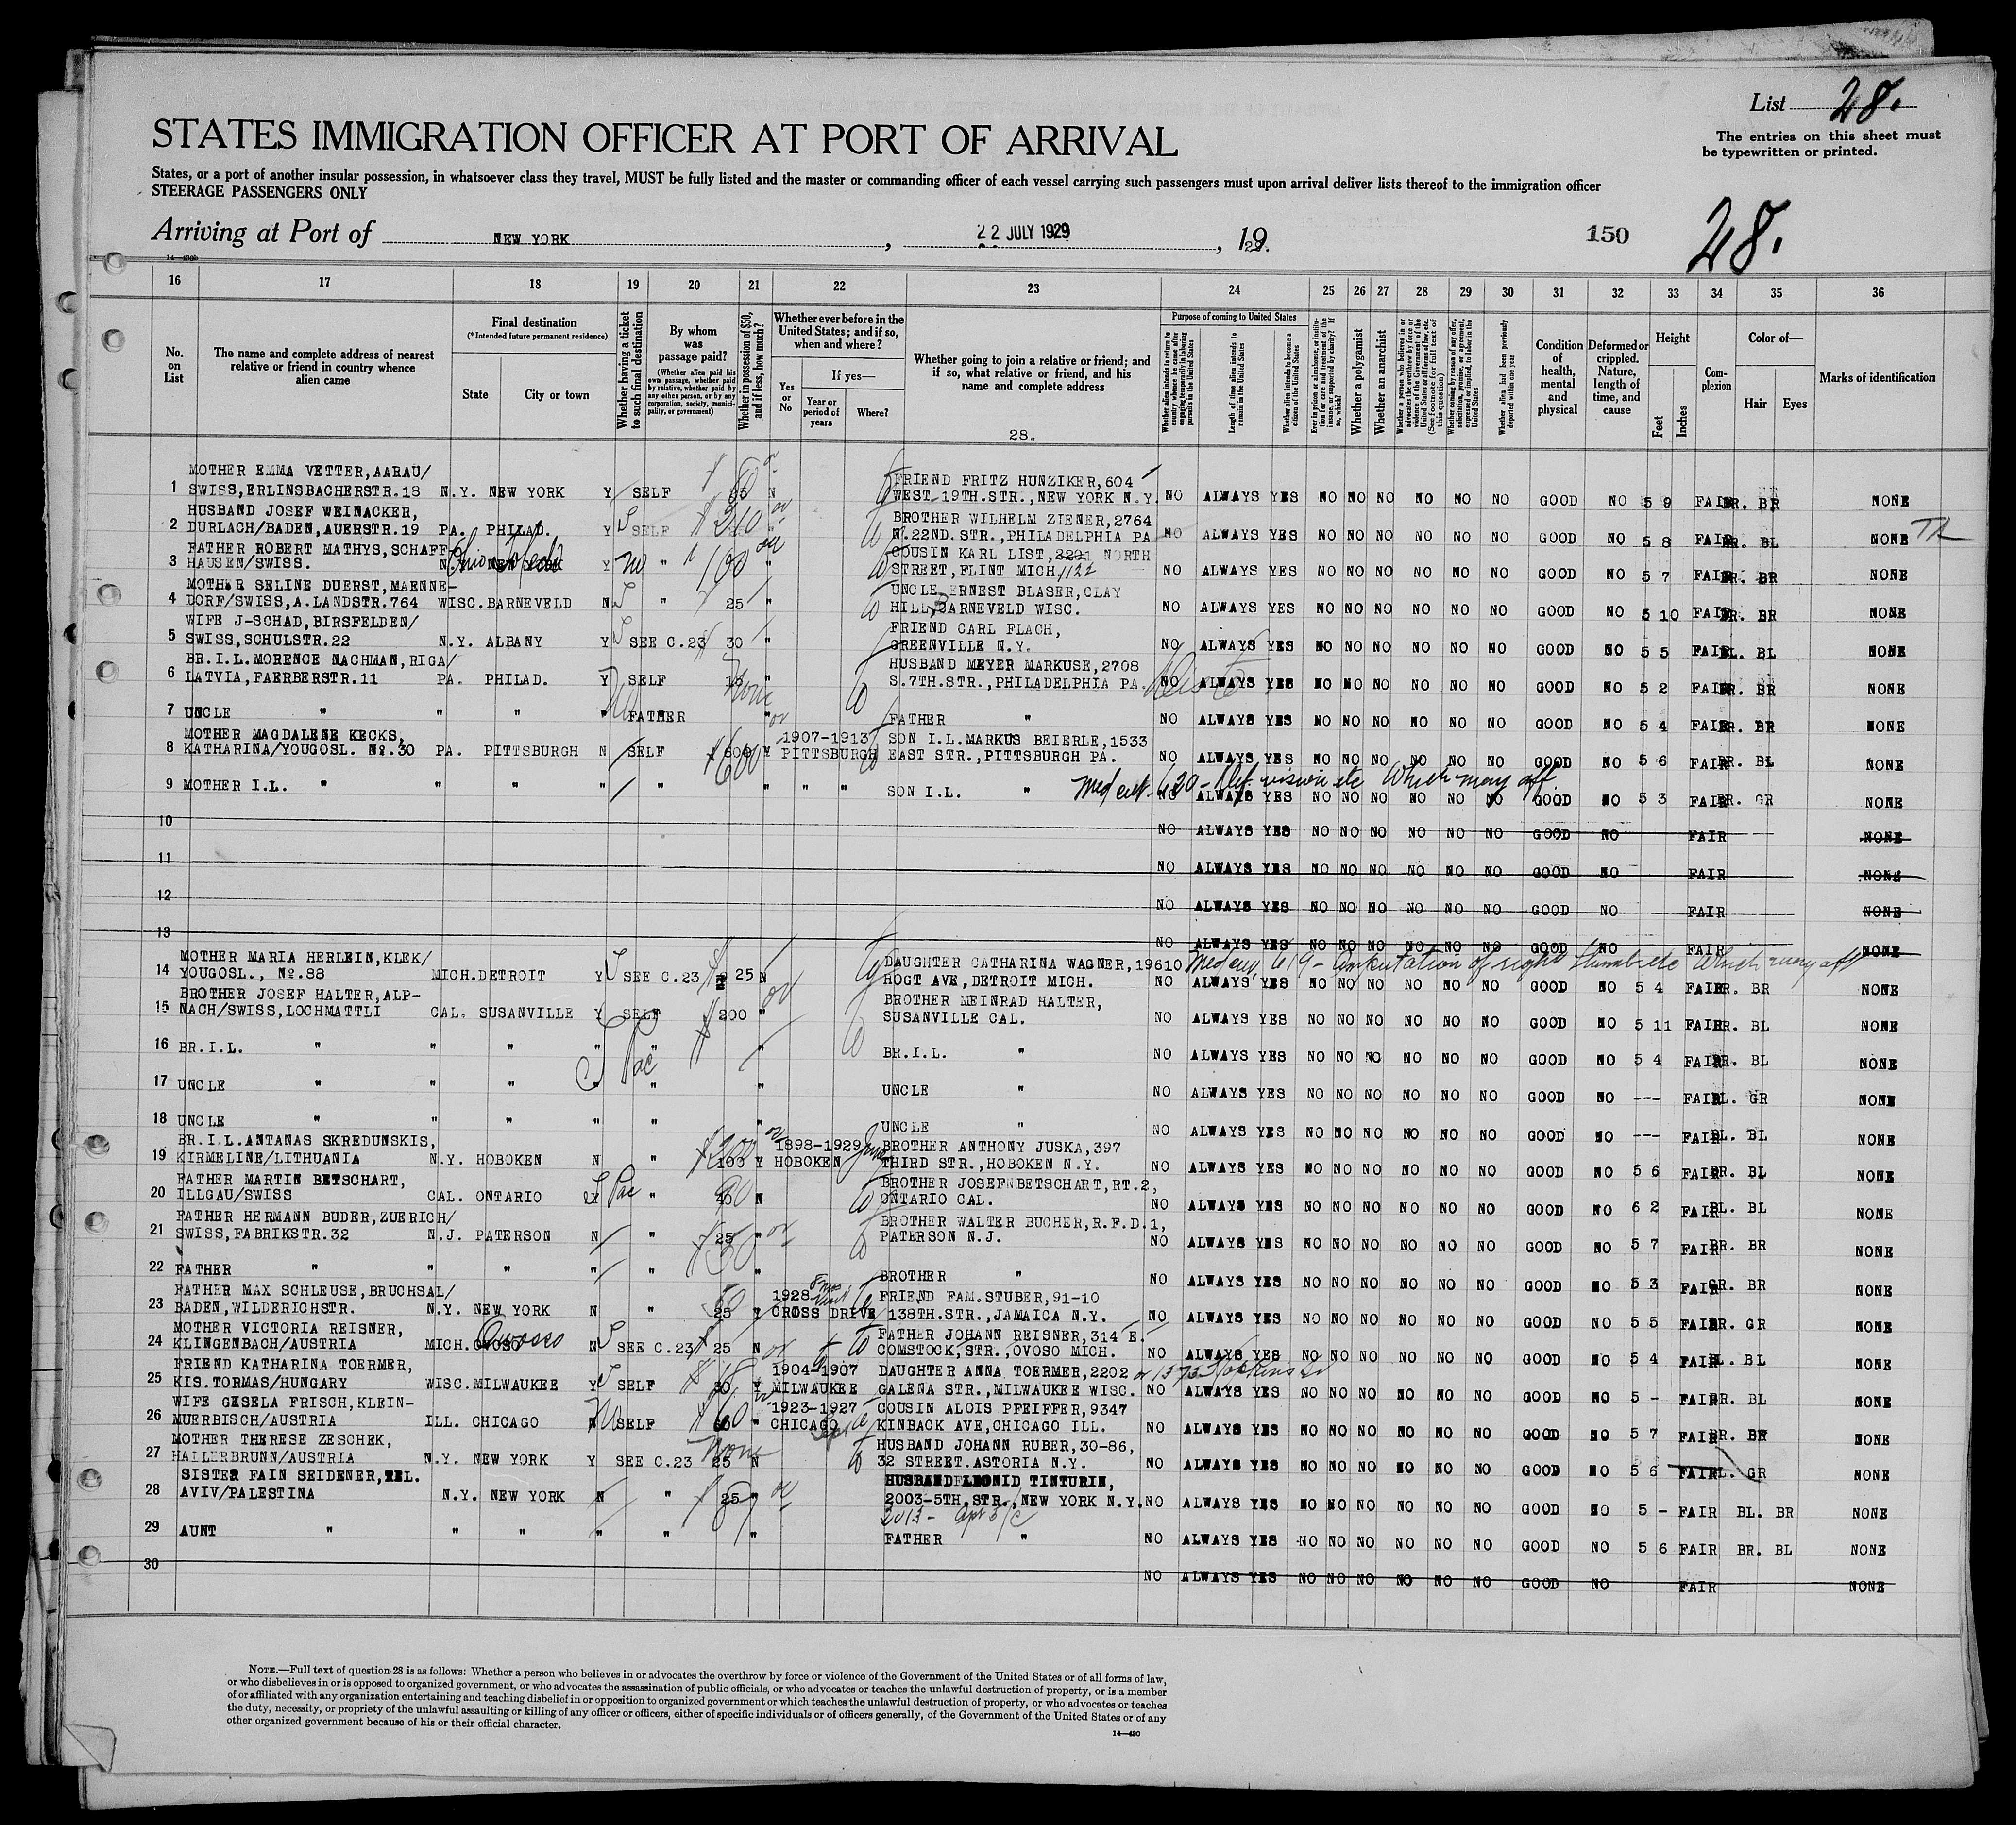 List 28.
The entries on this sheet must
be typewritten or printed.
STATES IMMIGRATION OFFICER AT PORT OF ARRIVAL
States, or a port of another insular possession, in whatsoever class they travel, MUST be fully listed and the master or commanding officer of each vessel carrying such passengers must upon arrival deliver lists thereof to the immigration officer
STEERAGE PASSENGERS ONLY
Arriving at Port of NEW YORK, 22 JULY 1929, 19 29. 150 28.
16 17 18 19 20 21 22 23 24 25 26 27 28 29 30 31 32 33 34 35 36
No. on List
The name and complete address of nearest relative or friend in country whence alien came
Final destination
(*Intended future permanent residence)
State City or town
Whether having a ticket to such final destination
By whom was passage paid?
(Whether alien paid his own passage, whether paid by relative, whether paid by any other person, or by any corporation, society, municipality, or government)
Whether in possession of $50, and if less, how much?
Whether ever before in the United States; and if so, when and where?
Yes or No
If yes—
Year or period of years
Where?
Whether going to join a relative or friend; and if so, what relative or friend, and his name and complete address
28.
Purpose of coming to United States
Whether alien intends to return to country whence he came after engaging temporarily in laboring pursuits in the United States
Length of time alien intends to remain in the United States
Whether alien intends to become a citizen of the United States
Ever in prison or almshouse, or institution for care and treatment of the insane, or supported by charity? If so, which?
Whether a polygamist
Whether an anarchist
Whether a person who believes in or advocates the overthrow by force or violence of the Government of the United States or all forms of law, etc. (See footnote for full text of this question)
Whether coming by reason of any offer, solicitation, promise, or agreement, expressed or implied, to labor in the United States
Whether alien had been previously deported within one year
Condition of health, mental and physical
Deformed or crippled. Nature, length of time, and cause
Height
Feet Inches
Complexion
Color of—
Hair Eyes
Marks of identification
MOTHER EMMA VETTER, AARAU/ FRIEND FRITZ HUNZIKER, 604
1 SWISS, ERLINSBACHERSTR. 18 N.Y. NEW YORK Y SELF N WEST 19TH. STR., NEW YORK N.Y. NO ALWAYS YES NO NO NO NO NO NO GOOD NO 5 9 FAIR BR. BR NONE
HUSBAND JOSEF WEINACKER, BROTHER WILHELM ZIENER, 2764
2 DURLACH/BADEN, AUERSTR. 19 PA. PHILAD. Y SELF N. 22ND. STR., PHILADELPHIA PA NO ALWAYS YES NO NO NO NO NO NO GOOD NO 5 8 FAIR BR. BL NONE
FATHER ROBERT MATHYS, SCHAFF- COUSIN KARL LIST, 2291 NORTH
3 HAUSEN/SWISS. Ohio Y no " 100 " STREET, FLINT MICH 1122 NO ALWAYS YES NO NO NO NO NO NO GOOD NO 5 7 FAIR BR. BR NONE
MOTHER SELINE DUERST, MAENNE- UNCLE ERNEST BLASER, CLAY
4 DORF/SWISS, A. LANDSTR. 764 WISC. BARNEVELD N " 25 " HILL, BARNEVELD WISC. NO ALWAYS YES NO NO NO NO NO NO GOOD NO 5 10 FAIR BR. BR NONE
WIFE J-SCHAD, BIRSFELDEN/ FRIEND CARL FLACH,
5 SWISS, SCHULSTR. 22 N.Y. ALBANY Y SEE C. 23 30 " GREENVILLE N.Y. NO ALWAYS YES NO NO NO NO NO NO GOOD NO 5 5 FAIR BL. BL NONE
BR. I.L. MORENCE NACHMAN, RIGA/ HUSBAND MEYER MARKUSE, 2708
6 LATVIA, FAERBERSTR. 11 PA. PHILAD. Y SELF None " S. 7TH. STR., PHILADELPHIA PA. NO ALWAYS YES NO NO NO NO NO NO GOOD NO 5 2 FAIR BR. BR NONE
7 UNCLE " " " " FATHER " FATHER " NO ALWAYS YES NO NO NO NO NO NO GOOD NO 5 4 FAIR BR. BR NONE
MOTHER MAGDALENE KECKS, 1907-1913 SON I.L. MARKUS BEIERLE, 1533
8 KATHARINA/YOUGOSL. No. 30 PA. PITTSBURGH N SELF 600 Y PITTSBURGH EAST STR., PITTSBURGH PA. NO ALWAYS YES NO NO NO NO NO NO GOOD NO 5 6 FAIR BR. BL NONE
Med cert. 620 - Def. vision etc Which may aff.
9 MOTHER I.L. " " " " " " " " SON I.L. " NO ALWAYS YES NO NO NO NO NO NO GOOD NO 5 3 FAIR BR. GR NONE
10 NO ALWAYS YES NO NO NO NO NO NO GOOD NO FAIR NONE
11 NO ALWAYS YES NO NO NO NO NO NO GOOD NO FAIR NONE
12 NO ALWAYS YES NO NO NO NO NO NO GOOD NO FAIR NONE
13 NO ALWAYS YES NO NO NO NO NO NO GOOD NO FAIR NONE
MOTHER MARIA HERLEIN, KLEK/ DAUGHTER CATHARINA WAGNER, 19610 Med cert 619 - Amputation of right thumb etc Which may aff
14 YOUGOSL., No. 88 MICH. DETROIT Y SEE C. 23 25 N HOGT AVE, DETROIT MICH. NO ALWAYS YES NO NO NO NO NO NO GOOD NO 5 4 FAIR BR. BR NONE
BROTHER JOSEF HALTER, ALP- BROTHER MEINRAD HALTER,
15 NACH/SWISS, LOCHMATTLI CAL. SUSANVILLE Y SELF 200 " SUSANVILLE CAL. NO ALWAYS YES NO NO NO NO NO NO GOOD NO 5 11 FAIR BR. BL NONE
16 BR. I.L. " " " " " " BR. I.L. " NO ALWAYS YES NO NO NO NO NO NO GOOD NO 5 4 FAIR BR. BL NONE
17 UNCLE " " " " " " UNCLE " NO ALWAYS YES NO NO NO NO NO NO GOOD NO --- FAIR BL. GR NONE
18 UNCLE " " " " " " UNCLE " NO ALWAYS YES NO NO NO NO NO NO GOOD NO --- FAIR BL. BL NONE
BR. I.L. ANTANAS SKREDUNSKIS, 1898-1929 BROTHER ANTHONY JUSKA, 397
19 KIRMELINE/LITHUANIA N.Y. HOBOKEN N " 100 Y HOBOKEN THIRD STR., HOBOKEN N.Y. NO ALWAYS YES NO NO NO NO NO NO GOOD NO 5 6 FAIR BR. BL NONE
FATHER MARTIN BETSCHART, BROTHER JOSEF BETSCHART, RT. 2,
20 ILLGAU/SWISS CAL. ONTARIO " N ONTARIO CAL. NO ALWAYS YES NO NO NO NO NO NO GOOD NO 6 2 FAIR BL. BL NONE
FATHER HERMANN BUDER, ZUERICH/ BROTHER WALTER BUCHER, R.F.D. 1,
21 SWISS, FABRIKSTR. 32 N.J. PATERSON N " 25 " PATERSON N.J. NO ALWAYS YES NO NO NO NO NO NO GOOD NO 5 7 FAIR BR. BR NONE
22 FATHER " " " " " " BROTHER " NO ALWAYS YES NO NO NO NO NO NO GOOD NO 5 3 FAIR GR. BR NONE
FATHER MAX SCHLEUSE, BRUCHSAL/ 1928 FRIEND FAM. STUBER, 91-10
23 BADEN, WILDERICHSTR. N.Y. NEW YORK N " 25 Y CROSS DRIVE 138TH. STR., JAMAICA N.Y. NO ALWAYS YES NO NO NO NO NO NO GOOD NO 5 5 FAIR BR. GR NONE
MOTHER VICTORIA REISNER, Owosso FATHER JOHANN REISNER, 314 E.
24 KLINGENBACH/AUSTRIA MICH. OVOSO N SEE C. 23 25 N COMSTOCK, STR., OVOSO MICH. NO ALWAYS YES NO NO NO NO NO NO GOOD NO 5 4 FAIR BL. BL NONE
FRIEND KATHARINA TOERMER, 1904-1907 DAUGHTER ANNA TOERMER, 2202
25 KIS. TORMAS/HUNGARY WISC. MILWAUKEE Y SELF Y MILWAUKEE GALENA STR., MILWAUKEE WISC. NO ALWAYS YES NO NO NO NO NO NO GOOD NO 5 - FAIR BR. BL NONE
WIFE GISELA FRISCH, KLEIN- 1923-1927 COUSIN ALOIS PFEIFFER, 9347
26 MUERBISCH/AUSTRIA ILL. CHICAGO SELF 60 " CHICAGO KINBACK AVE, CHICAGO ILL. NO ALWAYS YES NO NO NO NO NO NO GOOD NO 5 7 FAIR BR. BR NONE
MOTHER THERESE ZESCHEK, HUSBAND JOHANN RUBER, 30-86,
27 HALLERBRUNN/AUSTRIA N.Y. NEW YORK Y SEE C. 23 None 25 N 32 STREET. ASTORIA N.Y. NO ALWAYS YES NO NO NO NO NO NO GOOD NO 5 6 FAIR BL. GR NONE
SISTER FAIN SEIDENER, TEL. HUSBAND LEONID TINTURIN,
28 AVIV/PALESTINA N.Y. NEW YORK N " 25 " 2003-5TH, STR., NEW YORK N.Y. NO ALWAYS YES NO NO NO NO NO NO GOOD NO 5 - FAIR BL. BR NONE
2013 - apt 5/c
29 AUNT " " " " " " FATHER " NO ALWAYS YES NO NO NO NO NO NO GOOD NO 5 6 FAIR BR. BL NONE
30 NO ALWAYS YES NO NO NO NO NO NO GOOD NO FAIR NONE
NOTE.—Full text of question 28 is as follows: Whether a person who believes in or advocates the overthrow by force or violence of the Government of the United States or of all forms of law,
or who disbelieves in or is opposed to organized government, or who advocates the assassination of public officials, or who advocates or teaches the unlawful destruction of property, or is a member
of or affiliated with any organization entertaining and teaching disbelief in or opposition to organized government or which teaches the unlawful destruction of property, or who advocates or teaches
the duty, necessity, or propriety of the unlawful assaulting or killing of any officer or officers, either of specific individuals or of officers generally, of the Government of the United States or of any
other organized government because of his or their official character.
14—430